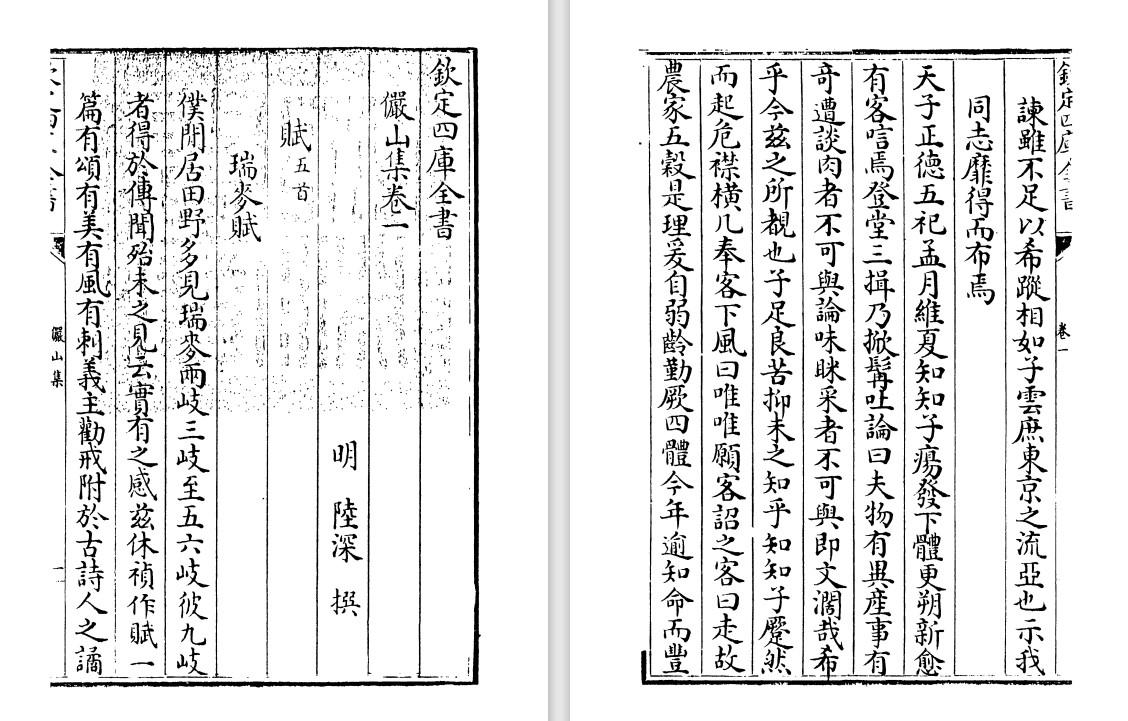 欽定四庫全書
儼山集卷一
明 陸深 撰
賦五首
瑞麥賦
僕閒居田野多見瑞麥兩岐三岐至五六岐彼九岐
者得於傳聞殆未之見云實有之感兹休禎作賦一
篇有頌有美有風有刺義主勸戒附於古詩人之譎
儼山集
一
欽定四庫全書
卷一
諫雖不足以希蹤相如子雲庶東京之流亞也示我
同志靡得而布焉
天子正德五祀孟月維夏知知子瘍發下體更朔新愈
有客唁焉登堂三揖乃掀髯吐論曰夫物有異產事有
奇遭談肉者不可與論味眯采者不可與即文濶哉希
乎今兹之所覩也子足良苦抑未之知乎知知子蹷然
而起危襟橫几奉客下風曰唯唯願客詔之客曰走故
農家五穀是理爰自弱齡勤厥四體今年逾知命而豐